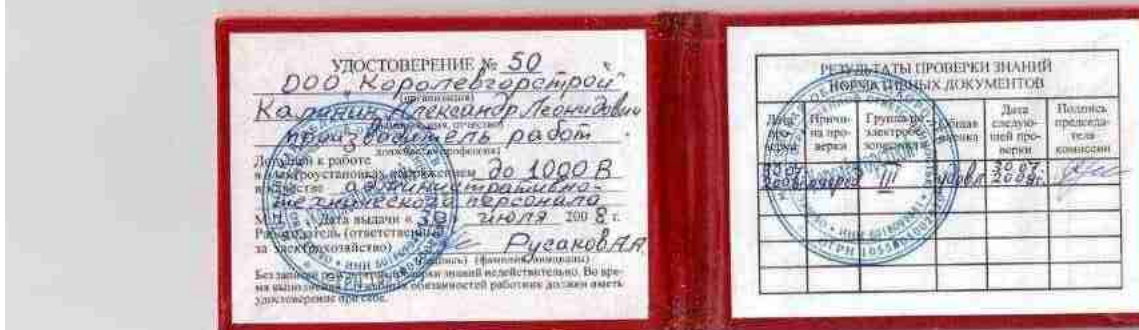 УДОСТОВЕРЕНИЕ № 50
ООО "Королевгорстрой"
(организация)
Александр Леонидович
производитель работ
Допущен к работе
в электроустановках напряжением до 1000 В
в качестве административно-
технического персонала
М.П. Дата выдачи « 30 июля 2008 г.
Работодатель (ответственный
за электрохозяйство) Русаков А.А.
(подпись) (фамилия, инициалы)
Без записи знаний недействительно. Во вре-
мя выполнения обязанностей работник должен иметь
удостоверение при себе.
РЕЗУЛЬТАТЫ ПРОВЕРКИ ЗНАНИЙ
НОРМАТИВНЫХ ДОКУМЕНТОВ
Дата про-верки Причи-на про-верки Группа по электробе-зопасности Общая оценка Дата следую-щей про-верки Подпись председа-теля комиссии
30.07 III удовл 30.07